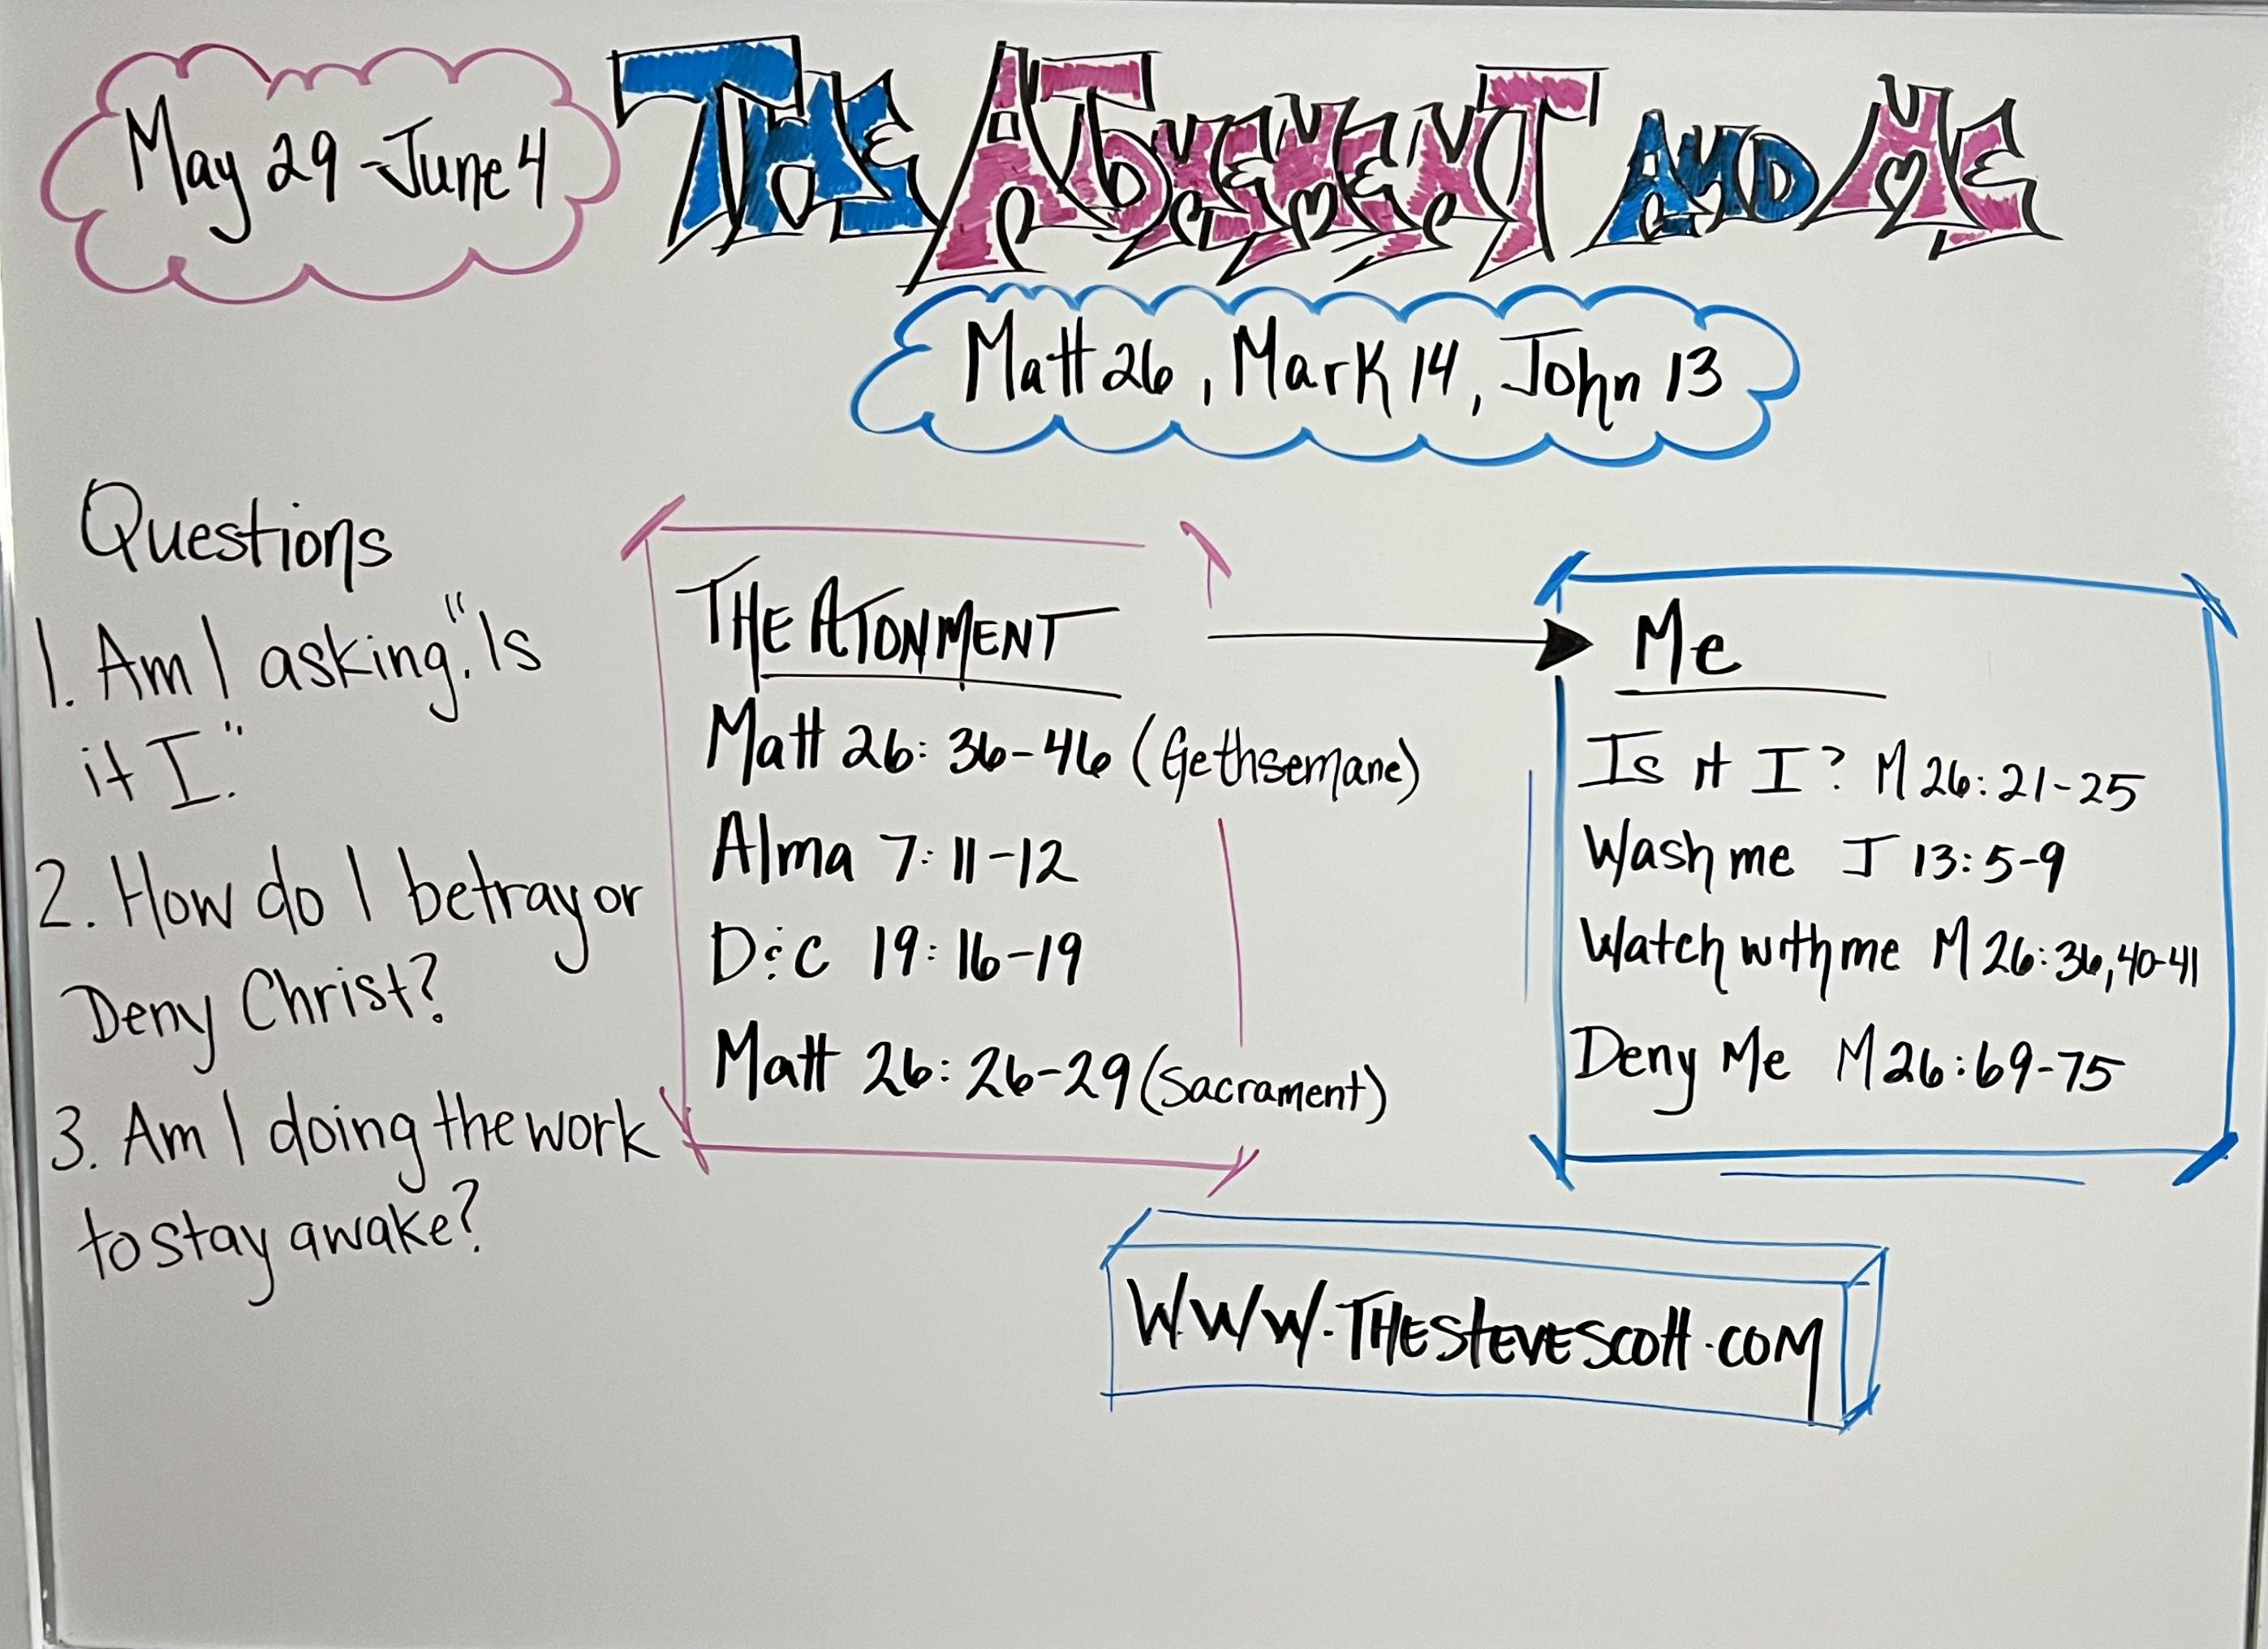 May 29 - June 4
THE ATONEMENT AND ME
Matt 26, Mark 14, John 13
Questions
1. Am I asking. "Is
it I."
2. How do I betray or
Deny Christ?
3. Am I doing the work
to stay awake?
THE ATONMENT
Matt 26: 36-46 (Gethsemane)
Alma 7: 11-12
D&C 19: 16-19
Matt 26: 26-29 (Sacrament)
Me
Is it I? M 26: 21-25
Wash me J 13: 5-9
Watch with me M 26: 36, 40-41
Deny Me M 26: 69-75
WWW.THESTEVESCOTT.COM